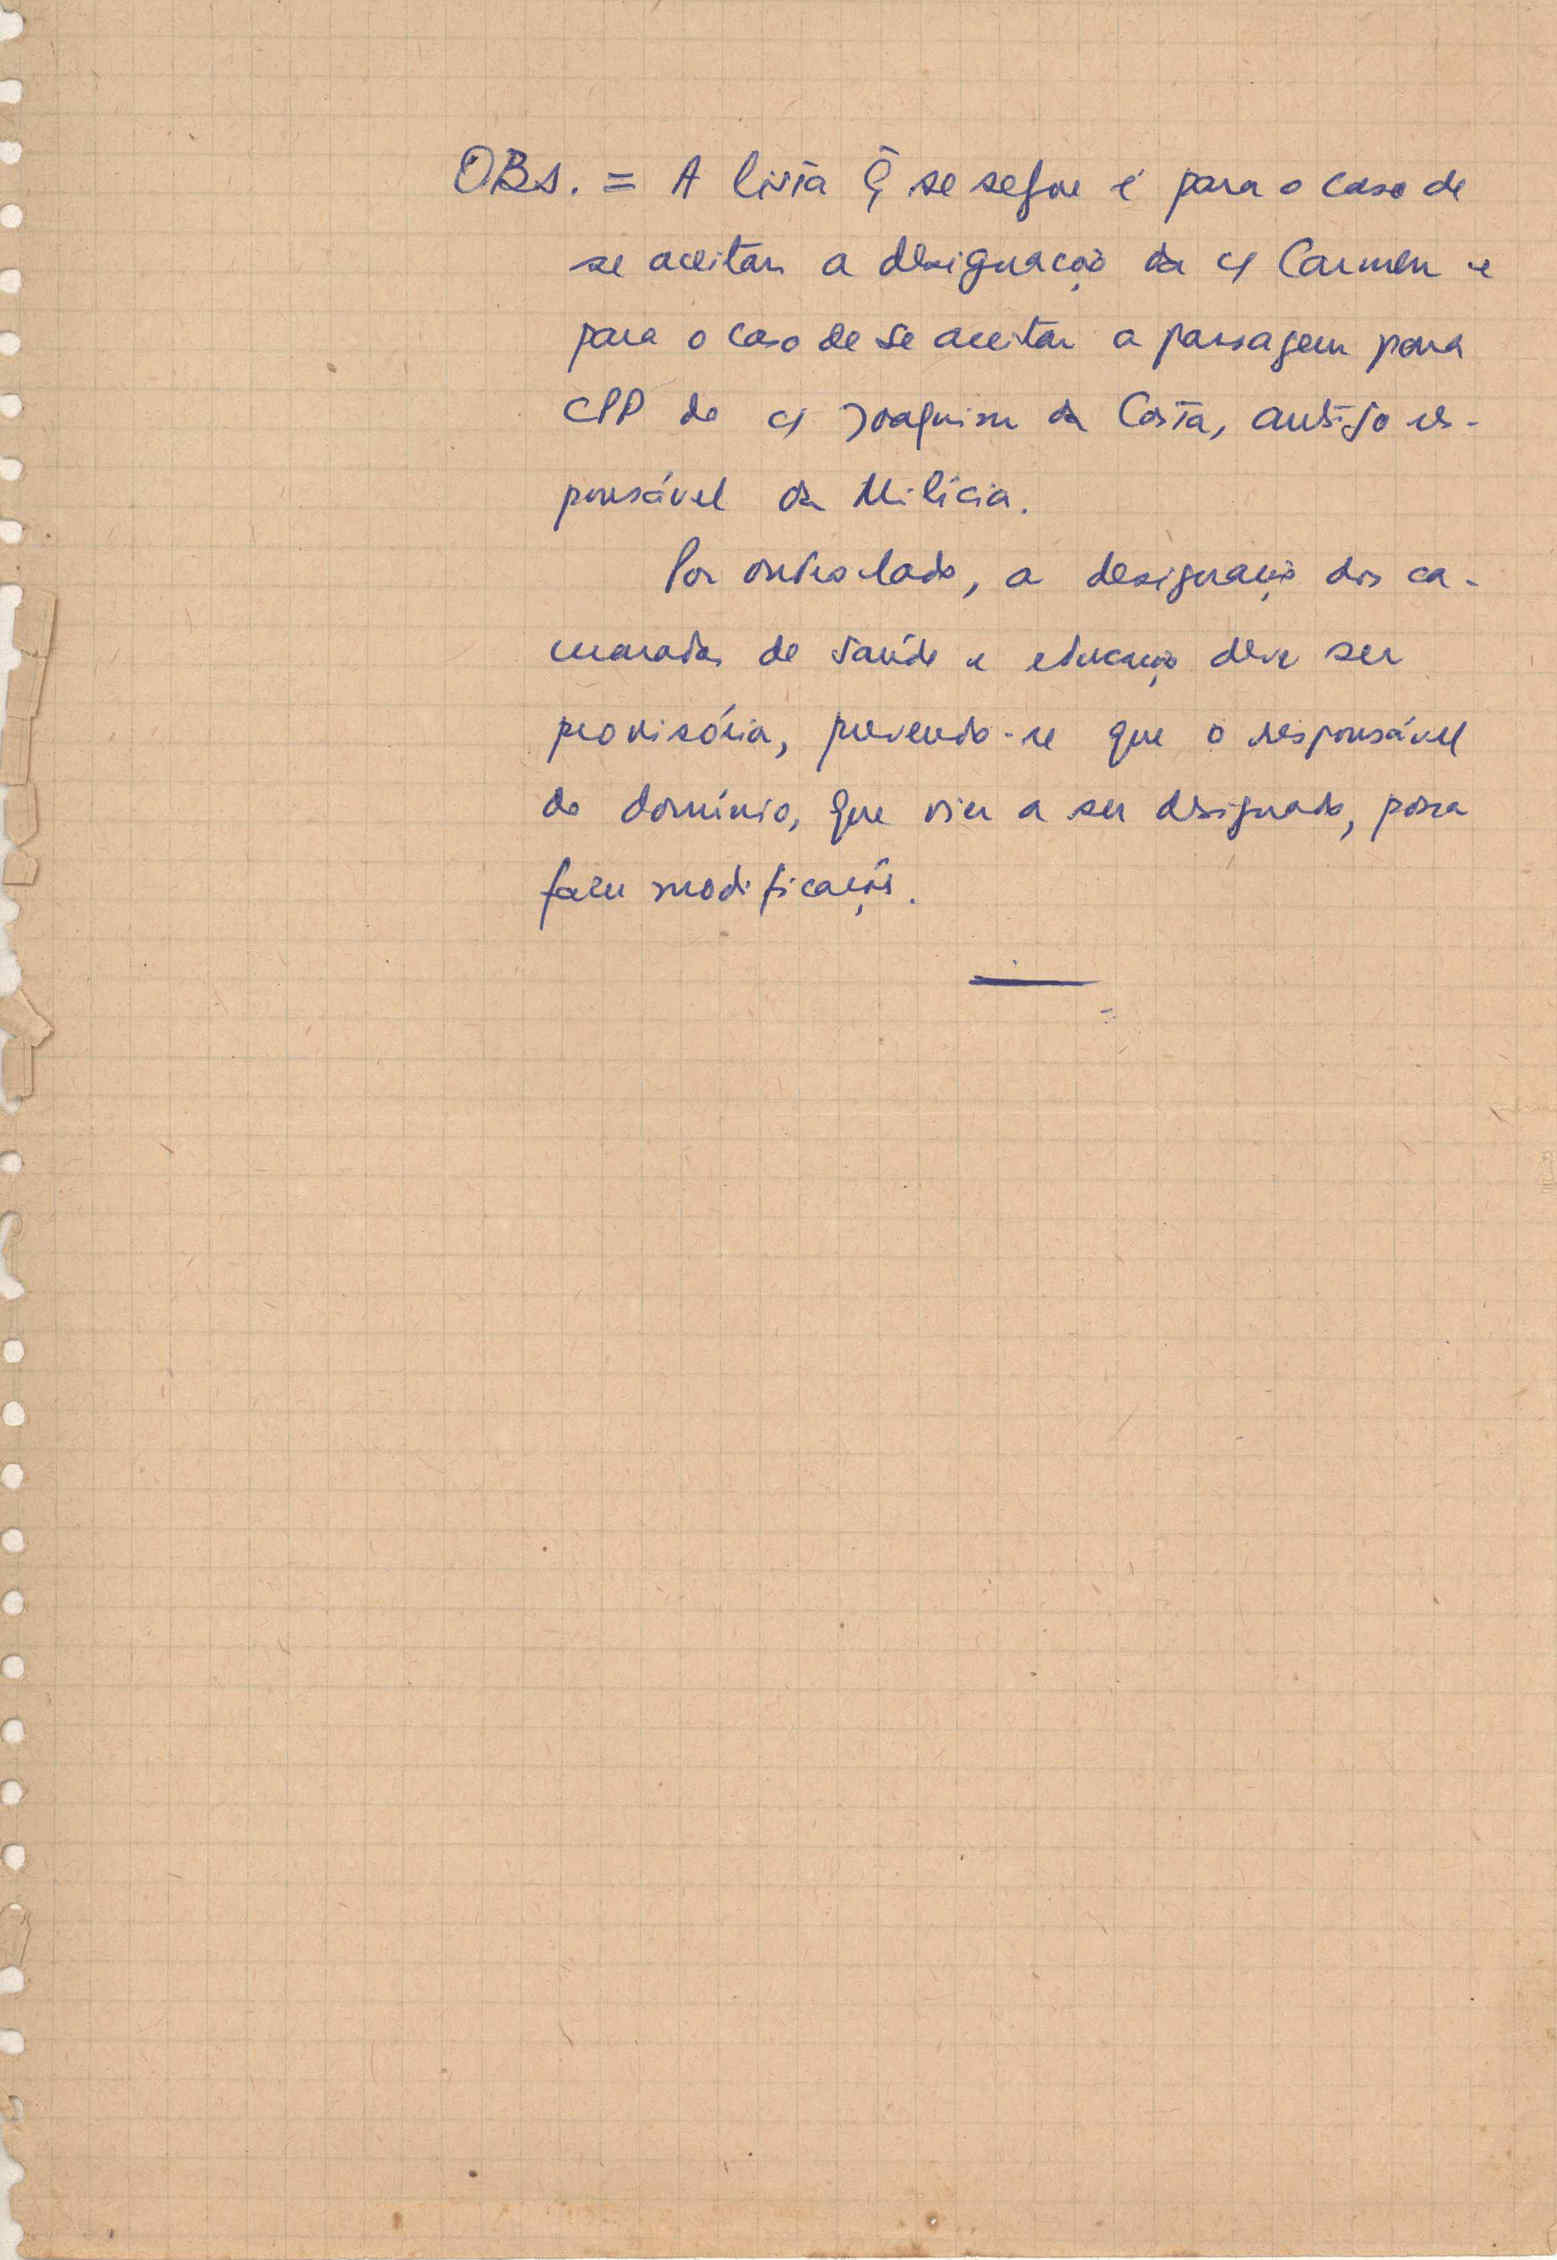 OBS. = A lista q̃ se segue é para o caso de
se aceitar a designação da c/ Carmen e
para o caso de se aceitar a passagem para
CPP do c/ Joaquim da Costa, antigo res-
ponsável da Milícia.
Por outro lado, a designação dos ca-
maradas de saúde e educação deve ser
provisória, prevendo-se que o responsável
do domínio, que vier a ser designado, possa
fazer modificações.